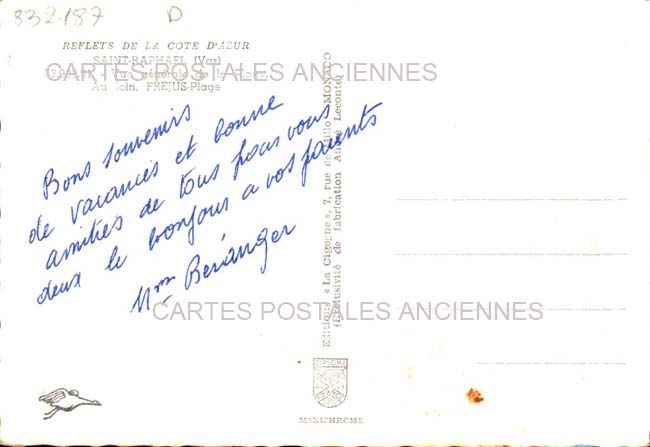 832-187 D
REFLETS DE LA COTE D'AZUR
SAINT-RAPHAEL (Var)
Vue générale de la Plage
Au loin, FREJUS-Plage
CARTES POSTALES ANCIENNES
Bons souvenirs
de vacances et bonne
amitiés de tous pour vous
deux le bonjour a vos parents
Mm Beranger
Editions « La Cigogne », 7, rue de Millo - MONACO
(Exclusivité de fabrication André Leconte)
CARTES POSTALES ANCIENNES
MEXICHROME